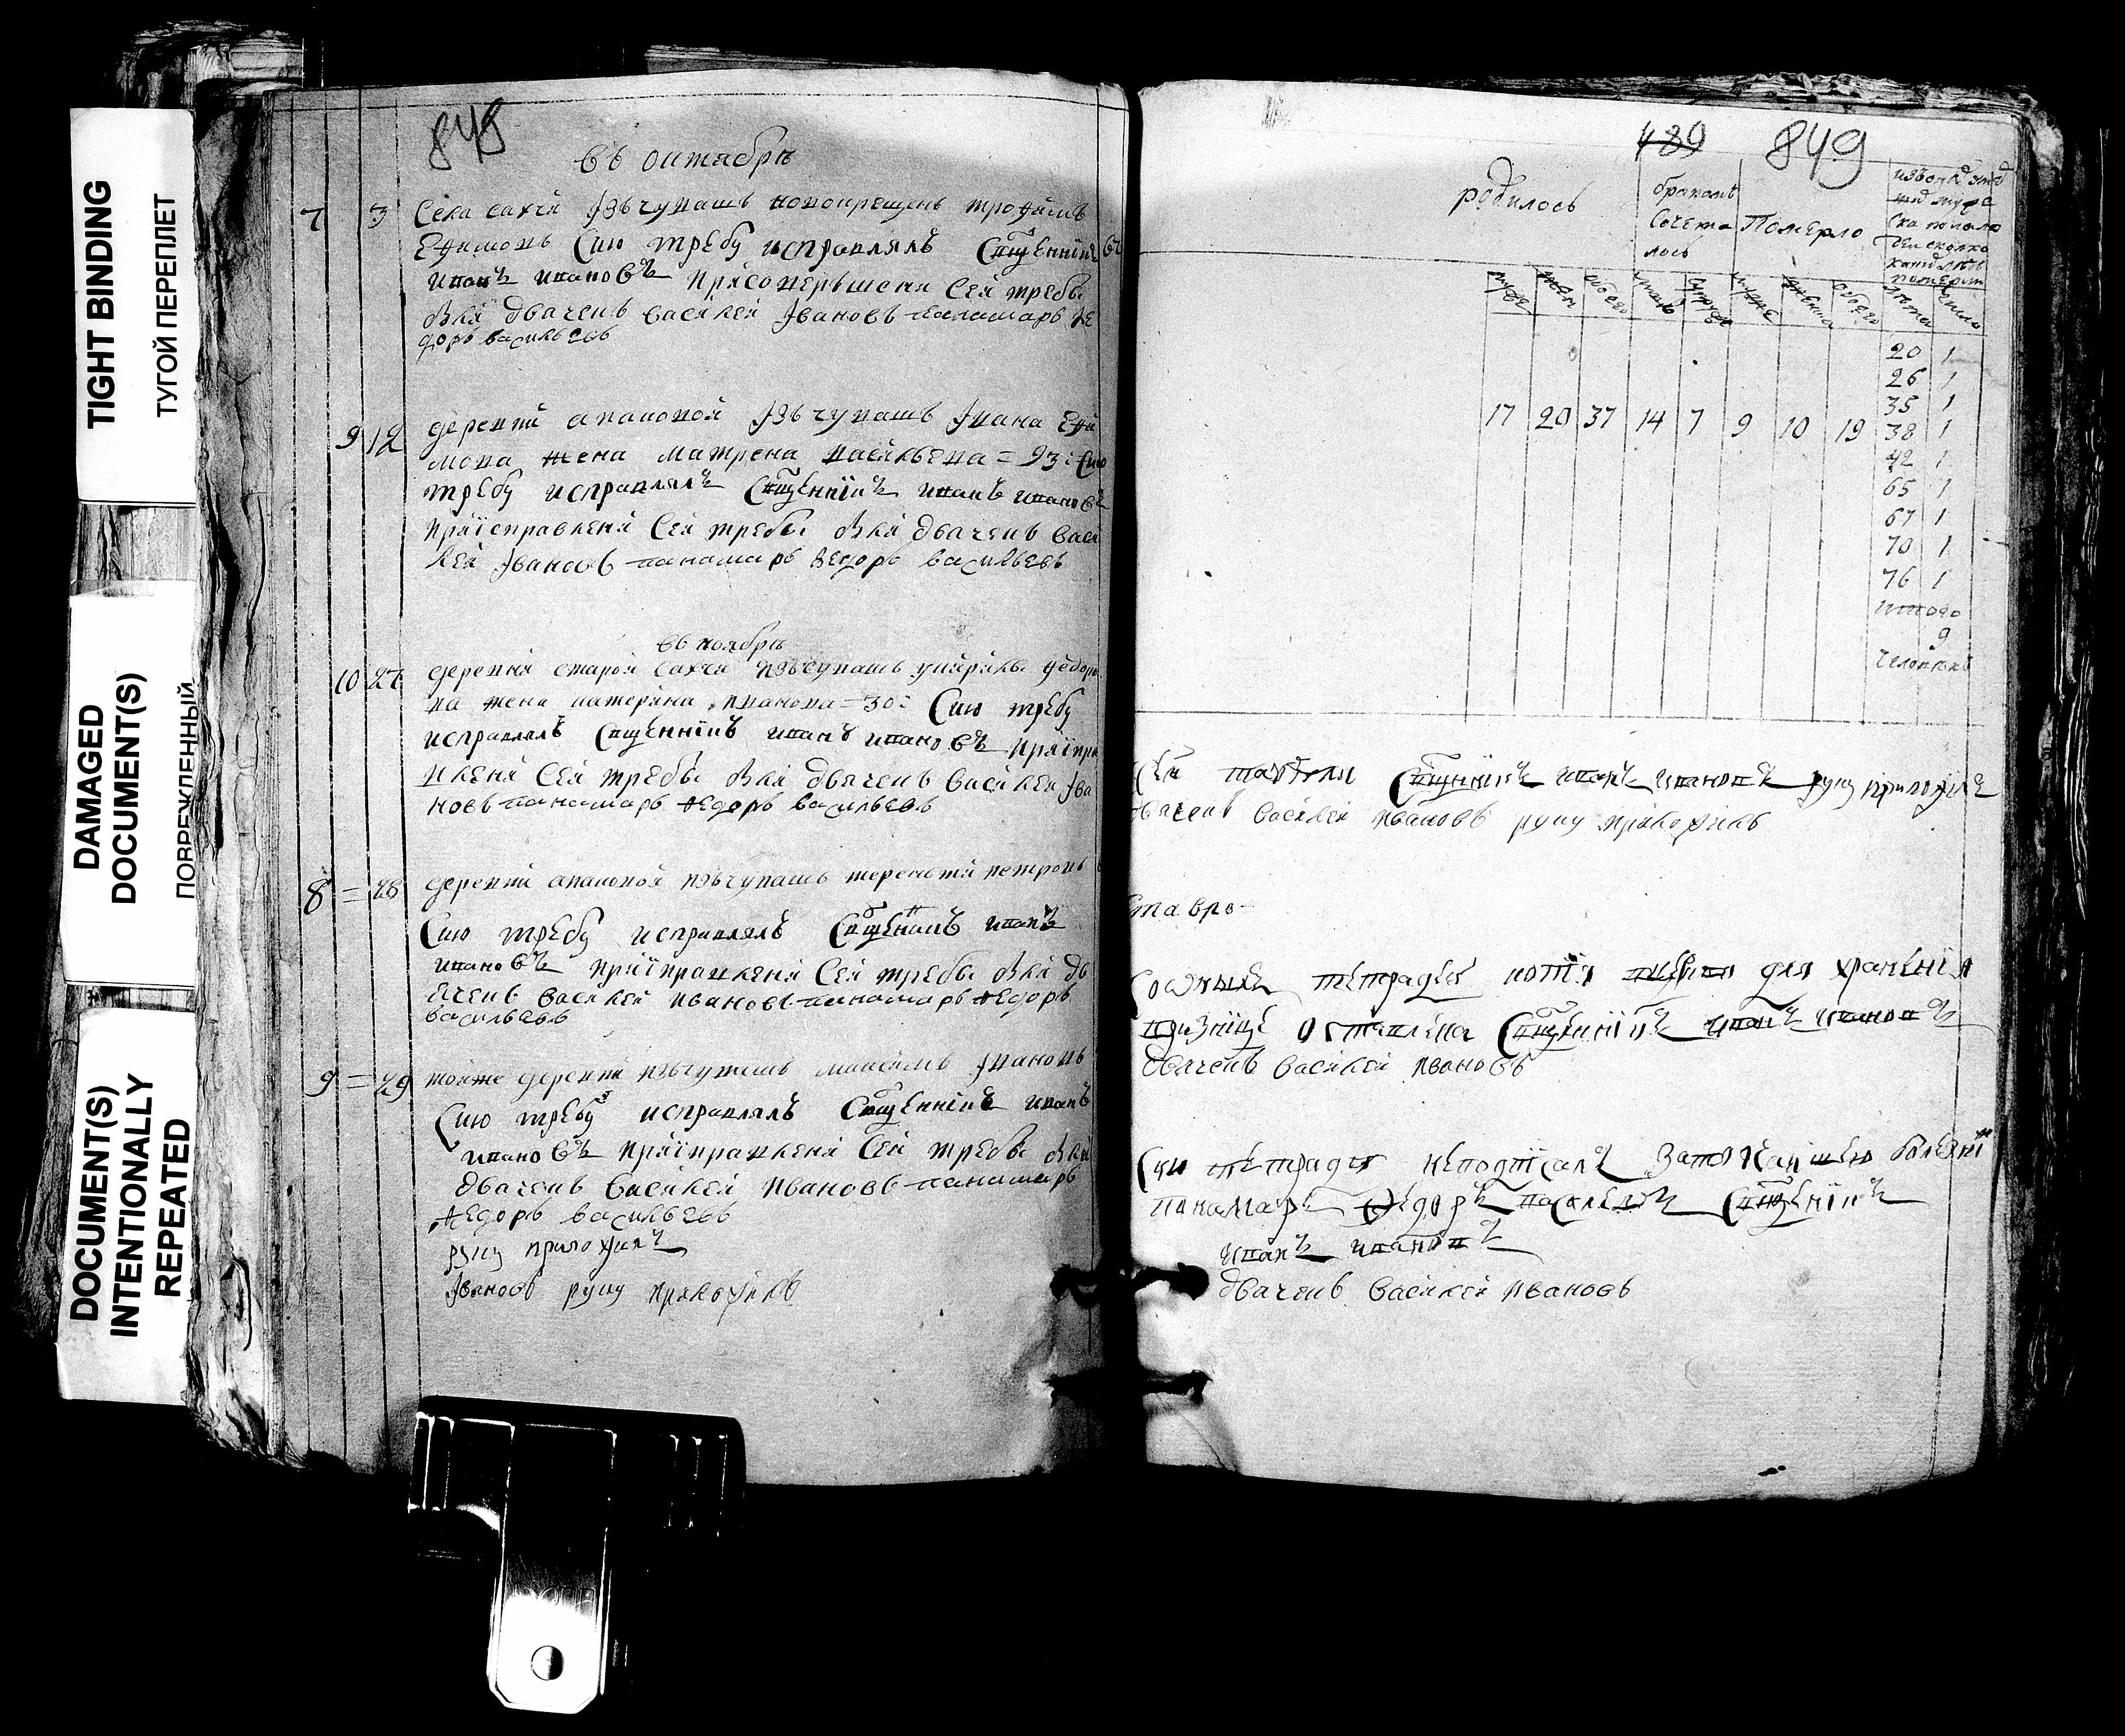 TIGHT BINDING
ТУГОЙ ПЕРЕПЛЕТ
DAMAGED
DOCUMENT(S)
ПОВРЕЖДЕННЫЙ
DOCUMENT(S)
INTENTIONALLY
REPEATED
848
въ октябрѣ
7 3 Села сахчи Iзъчувашъ новокрещенъ трофимъ
Ефимовъ Сию трЕбу исправлялъ СвщЕнникъ
иванъ ивановъ присовершени Сей требы
были дьячекъ василей Iвановъ панамарь Fе
доръ васильевъ
9 12 деревни Iзъчувашъ Iвана Ефи
мова жена матрена васильева = 93: Сию
трЕбу исправлялъ СвщЕнникъ иванъ ивановъ
приїсправлени Сей требы были дьячекъ васи
лей Iвановъ панамарь Fедоръ васильевъ
въ ноябрѣ
10 27 деревни старой сахчи изъчувашъ федоро
ва жена катерина иванова = 30: Сию трЕбу
исправлялъ СвщЕнникъ иванъ ивановъ приїпра
влени Сей требы были дьячекъ василей Iва
новъ панамарь Fедоръ васильевъ
8 = 28 деревни изъчувашъ терентей петровъ
Сию трЕбу исправлялъ СвщЕнникъ иванъ
ивановъ приїправлени Сей требы были дь
ячекъ василей ивановъ панамарь Fедоръ
васильевъ
9 = 29 тойже деревни изъчувашъ максимъ Iвановъ
Сию трЕбу исправлялъ СвщЕнникъ иванъ
ивановъ приїправлени Сей требы были
дьячекъ василей ивановъ панамарь
Fедоръ васильевъ
руку приложилъ
Iвановъ руку приложилъ
489 849
родилось
бракомъ
сочета
лось
Померло
помЕрли
муже
женъ
обоего
обоего
лѣта
число
17 20 37 14 7 9 10 19
20 1
26 1
35 1
38 1
42 1
65 1
67 1
70 1
76 1
итого
9
человѣкъ
Свщенникъ иванъ ивановъ руку приложилъ
дьячекъ василей ивановъ руку приложилъ
тетрадей копия для хранения
вризнице оставлена Свщенникъ иванъ ивановъ
дьячекъ василей ивановъ
Сии тетради неподписалъ болезни
панамарь Федоръ васильевъ Свщенникъ
иванъ ивановъ
дьячекъ василей ивановъ